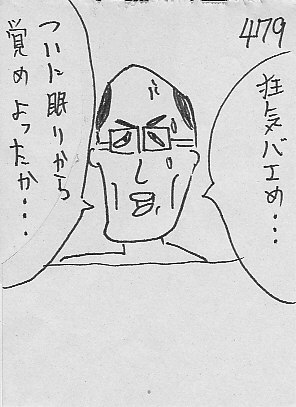 479
狂気バエめ・・・
ついに眠りから
覚めよったか・・・